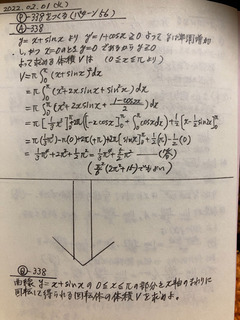 2022.02.01(火)
Ⓠ-338をつくる(パターン56)
Ⓐ-338
y=x+sinxより y'=1+cosx≧0 よってyは単調増加
しかもx=0のときy=0であるからy≧0
よって求める体積Vは (0≦x≦πより)
V=π∫₀^π(x+sinx)²dx
=π∫₀^π(x²+2xsinx+sin²x)dx
=π∫₀^π(x²+2xsinx+(1-cos2x)/2)dx
=π[1/3x³]₀^π+2π{[-xcosx]₀^π+∫₀^πcosxdx}+
=π(1/3π³)-π(0)+2π(+π)+2π[sinx]₀^π+
=1/3π⁴+2π²+1/2π²=1/3π⁴+5/2π² (答)
Ⓠ-338
曲線 y=x+sinxの0≦x≦πの部分をx軸のまわりに
回転して得られる回転体の体積Vを求めよ。